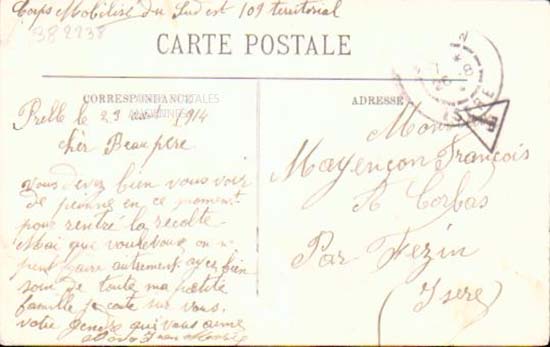 Corps Mobilisé du Sud est 109 territorial
382238
CARTE POSTALE
CORRESPONDANCE
ADRESSE
Prelle le 23 août 1914
chèr Beaupere
vous devez bien vous voir
de peinne en ce moment
pour rentré la recolte
Mai qui voulevous on
peut faire autrement ayez bien
soin de toute ma petite
famille je conte sur vous
votre gendre qui vous aime
Mons
Mayençon François
A Corbas
Par Fezin
(Isere)